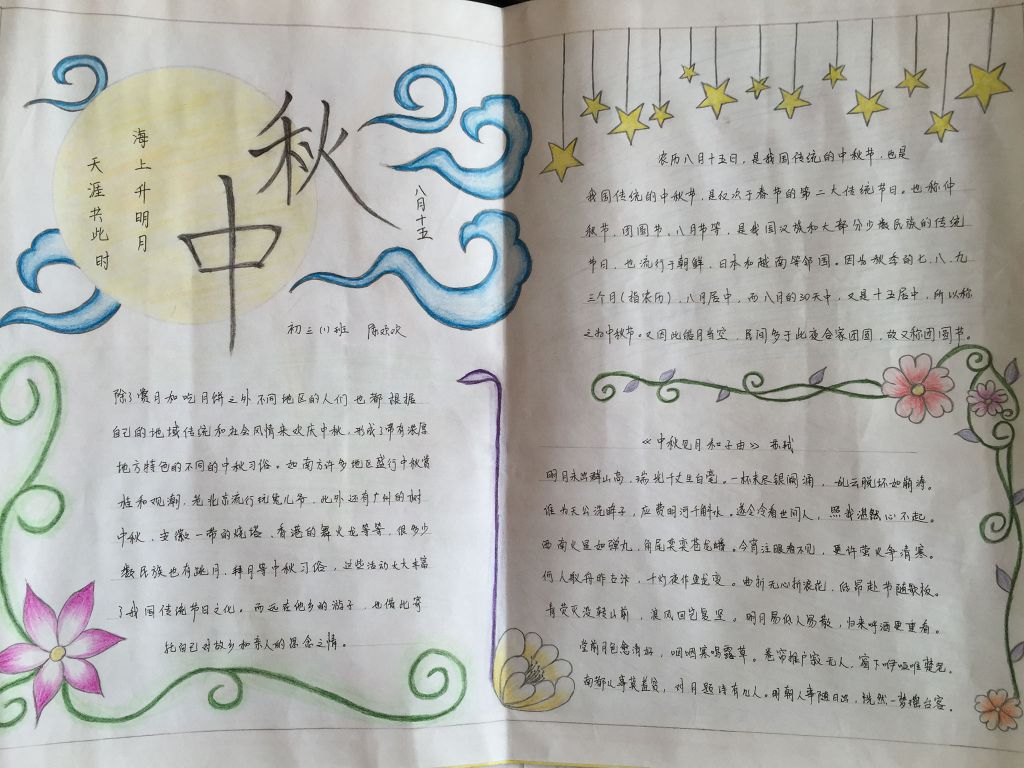 海上升明月
天涯共此时
中秋
八月十五
初三(1)班 陈欢欢
除了赏月和吃月饼之外不同地区的人们也都根据
自己的地域传统和社会风情来欢庆中秋，形成了带有浓厚
地方特色的不同的中秋习俗。如南方许多地区盛行中秋赏
桂和观潮，老北京流行玩兔儿爷，此外还有广州的树
中秋，安徽一带的烧塔、香港的舞火龙等等，很多少
数民族也有跳月，拜月等中秋习俗，这些活动大大丰富
了我国传统节日文化。而远在他乡的游子，也借此寄
托自己对故乡和亲人的思念之情。
农历八月十五日，是我国传统的中秋节，也是
我国传统的中秋节，是仅次于春节的第二大传统节日。也称仲
秋节，团圆节、八月节等，是我国汉族和大部分少数民族的传统
节日，也流行于朝鲜，日本和越南等邻国。因为秋季的七、八、九
三个月(指农历)，八月居中，而八月的30天中，又是十五居中，所以称
之为中秋节。又因此皓月当空，民间多于此夜合家团圆，故又称团圆节。
《中秋见月和子由》 苏轼
明月未出群山高，瑞光千丈生白毫。一杯未尽银阙涌，乱云脱坏如崩涛。
谁为天公洗眸子，应费明河千斛水。遂令冷看世间人，照我湛然心不起。
西南火星如弹丸，角尾奕奕苍龙蟠。今宵注眼看不见，更许萤火争清寒。
何人舣舟昨古汴，千灯夜作鱼龙变。曲折无心逐浪花，低昂赴节随歌板。
青荧灭没转山前，浪风回岂复坚。明月易低人易散，归来呼酒更重看。
堂前月色愈清好，咽咽寒螀鸣露草。卷帘推户寂无人，窗下咿哑唯楚老。
南都从事莫羞贫，对月题诗有几人。明朝人事随日出，恍然一梦瑶台客。